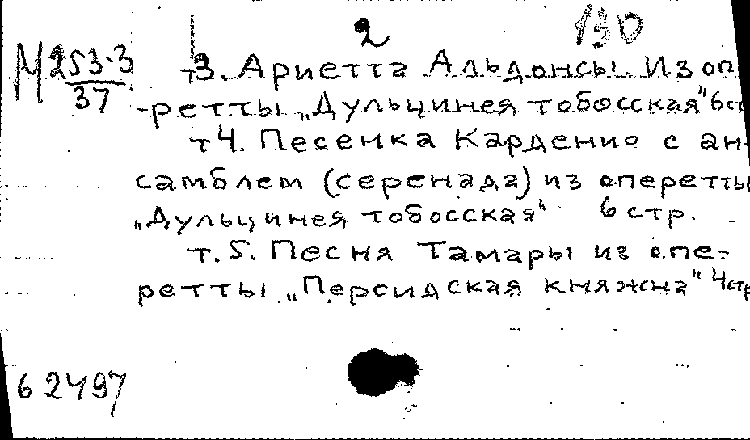 2 130
М 253-3
37
т3. Ариетта Альдонсы из опе
-ретты „Дульцинея тобосская" 6 ст
т4. Песенка Карденио с ан-
самблем (серенада) из оперетты
„Дульцинея тобосская" 6 стр.
т.5. Песня Тамары из опе-
ретты „Персидская княжна" 4 стр
62497